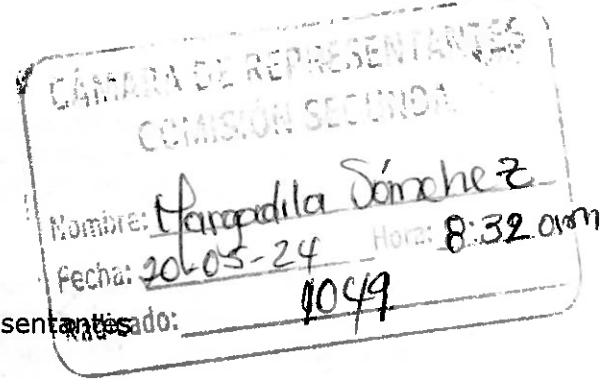 CÁMARA DE REPRESENTANTES
COMISIÓN SEGUNDA
Nombre: Sánchez
Fecha: 20-05-24 Hora: 8:32 am
sentantes Radicado: 1049